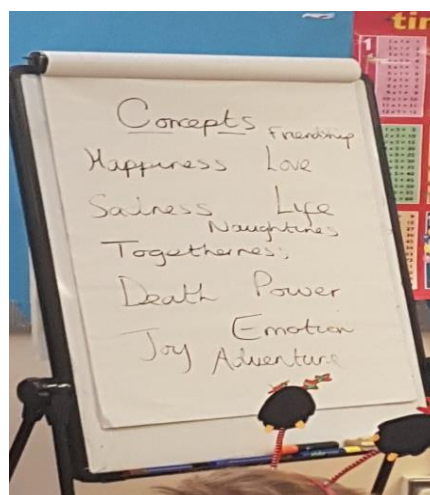 Concepts
Friendship
Happiness Love
Saness Life
Naughtines
Togetherness
Death Power
Emotion
Joy Adventure
tim
1